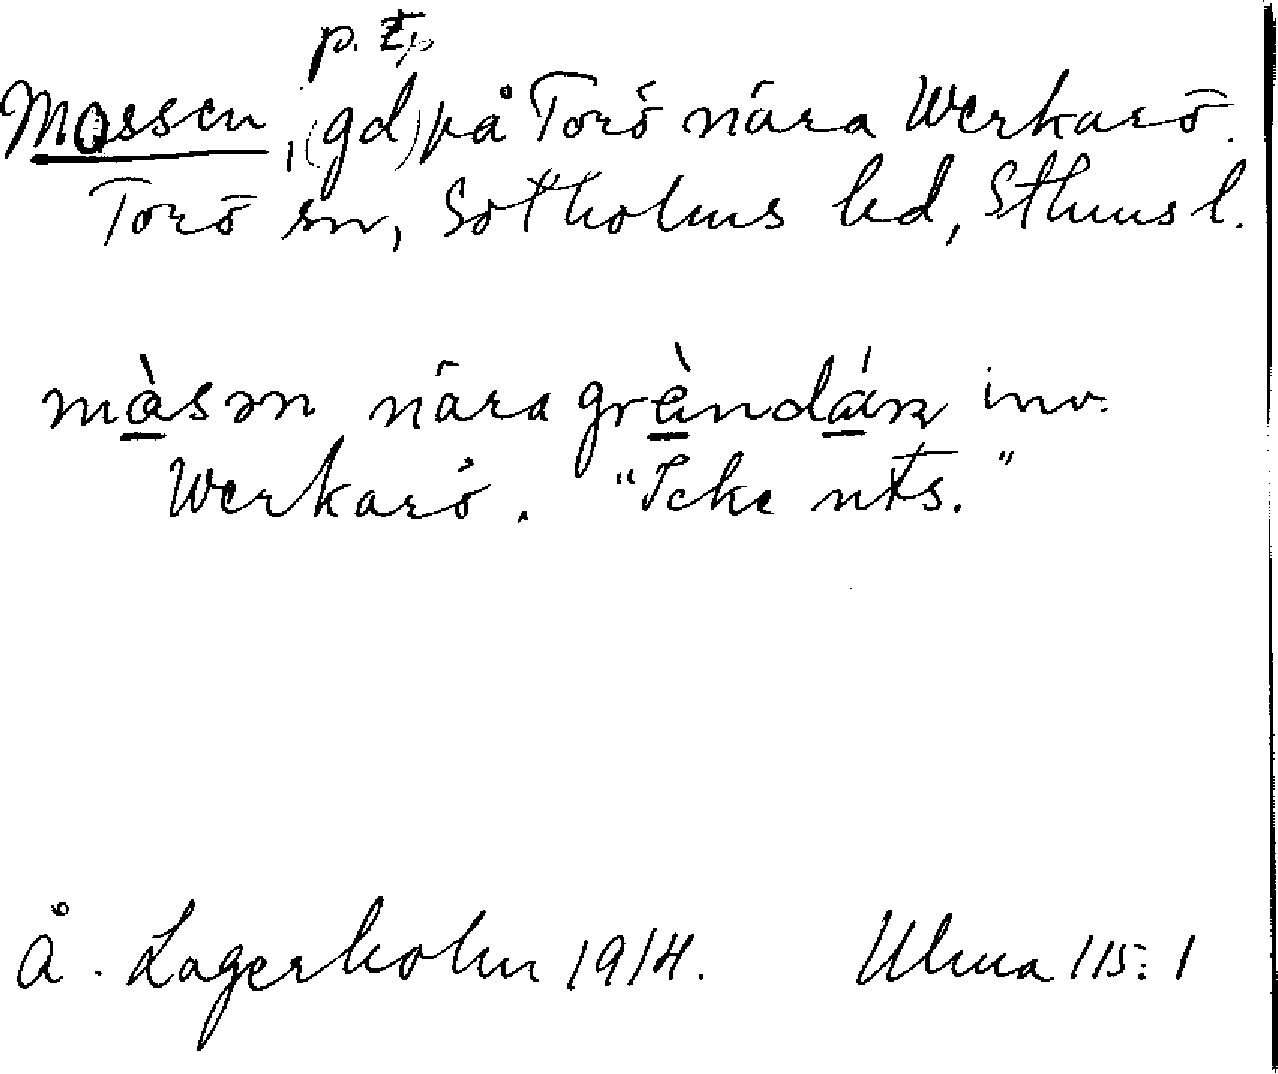 p. t.
Mossen, (gd) på Torö nära Werkarö.
Torö sn, Sotholms hd, Sthms l.
nära inv.
Werkarö. "Icke uts."
Å. Lagerholm 1914. Ulma 115:1